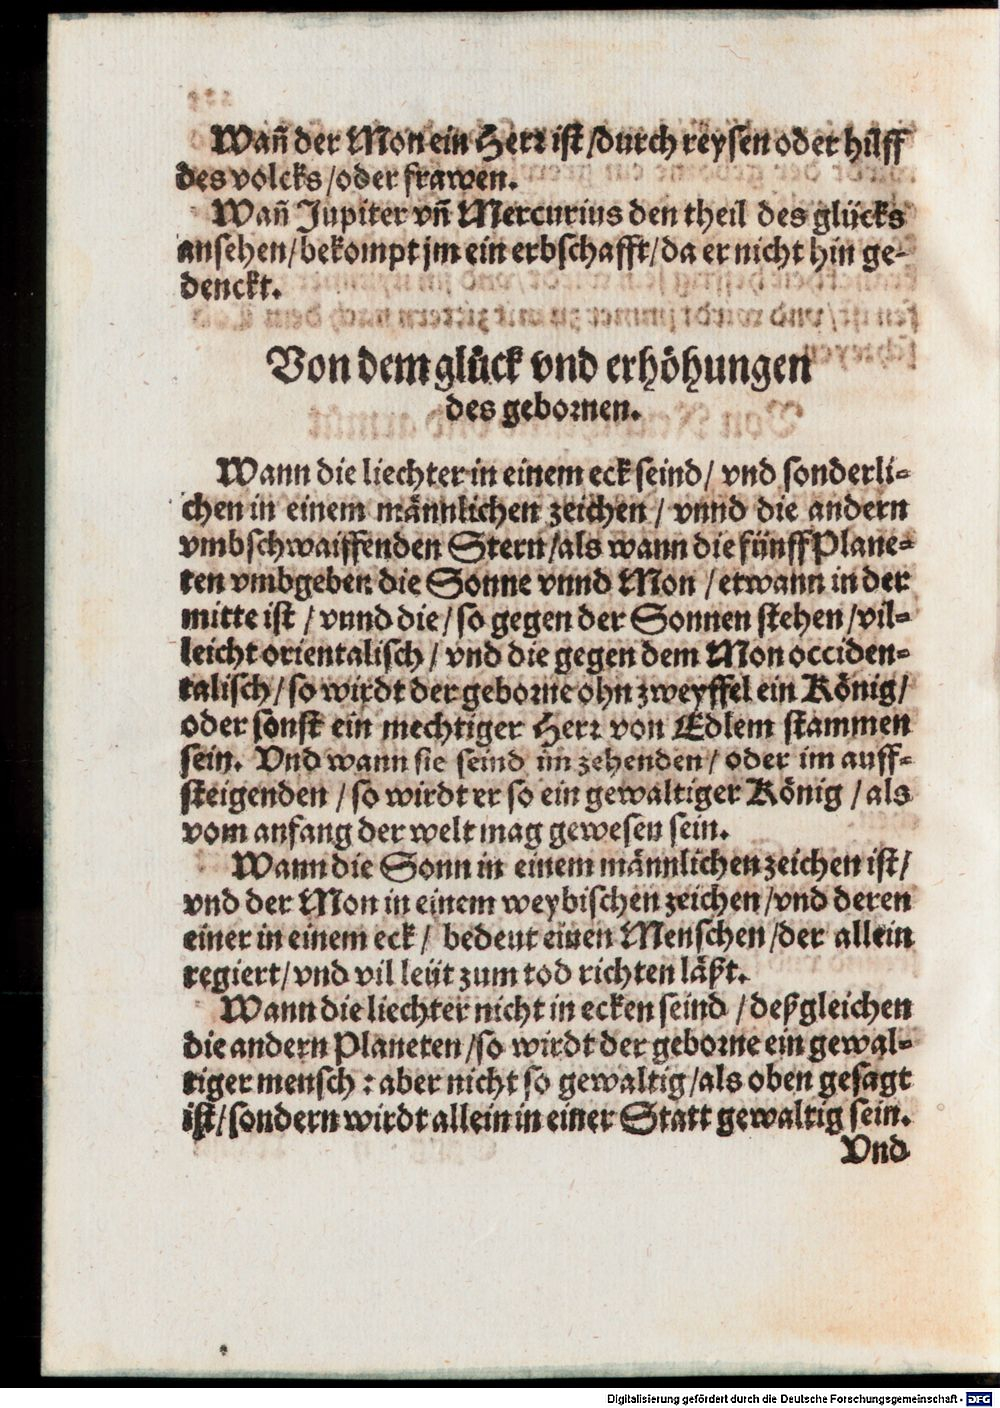 Wañ der Mon ein Herr ist / durch reysen oder hilff
des volcks / oder frawen.
Wañ Jupiter vñ Mercurius den theil des glücks
ansehen / bekompt jm ein erbschafft / da er nicht hin ge-
denckt.
Von dem glück vnd erhöhungen
des gebornen.
Wann die liechter in einem eck seind / vnd sonderli-
chen in einem männlichen zeichen / vnnd die andern
vmbschwaiffenden Stern / als wann die fünff Plane-
ten vmbgeben die Sonne vnnd Mon / etwann in der
mitte ist / vnnd die / so gegen der Sonnen stehen / vil-
leicht orientalisch / vnd die gegen dem Mon occiden-
talisch / so wirdt der geborne ohn zweyffel ein König /
oder sonst ein mechtiger Herr von Edlem stammen
sein. Vnd wann sie seind im zehenden / oder im auff-
steigenden / so wirdt er so ein gewaltiger König / als
vom anfang der welt mag gewesen sein.
Wann die Sonn in einem männlichen zeichen ist /
vnd der Mon in einem weybischen zeichen / vnd deren
einer in einem eck / bedeut einen Menschen / der allein
regiert / vnd vil leüt zum tod richten läßt.
Wann die liechter nicht in ecken seind / deßgleichen
die andern Planeten / so wirdt der geborne ein gewal-
tiger mensch : aber nicht so gewaltig / als oben gesagt
ist / sondern wirdt allein in einer Statt gewaltig sein.
Vnd
Digitalisierung gefördert durch die Deutsche Forschungsgemeinschaft - DFG